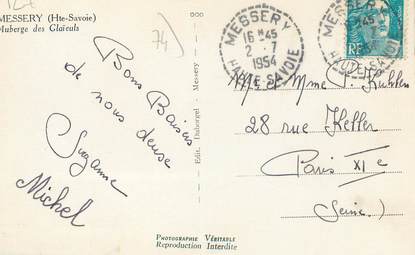 MESSERY (Hte-Savoie)
Auberge des Glaïeuls
74
Bons Baisers
de nous deux
Suzanne
Michel
Edit. Duborgel - Messery
PHOTOGRAPHIE VÉRITABLE
Reproduction Interdite
MESSERY
16H45
2-7
1954
HAUTE-SAVOIE
RF
Mr et Mme
28 rue Keller
Paris XIe
(Seine.)